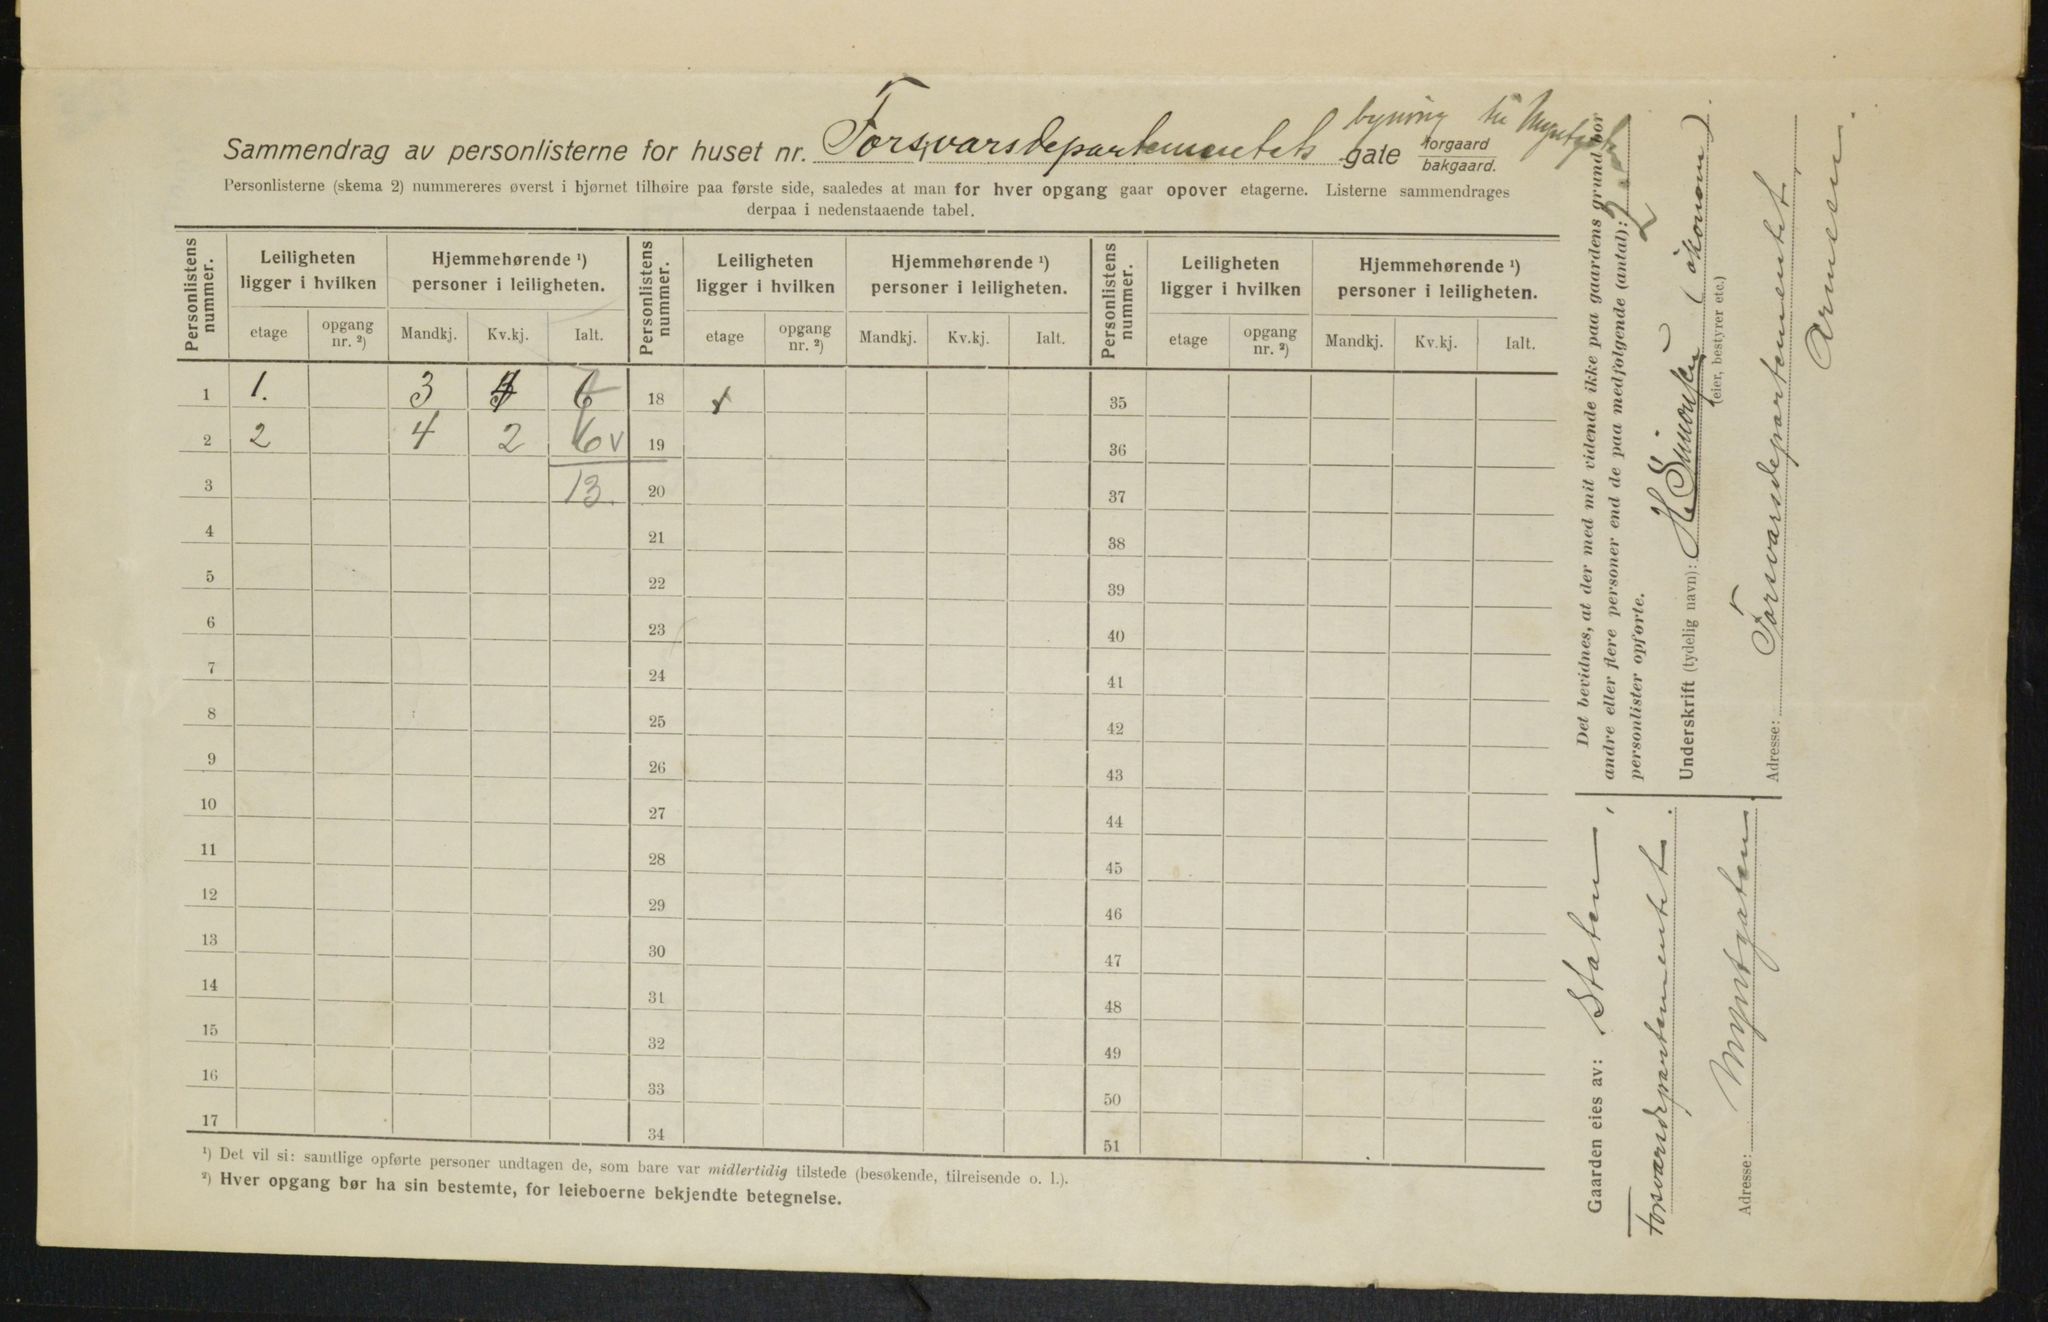 Sammendrag av personlisterne for huset nr. Forsvarsdepartementets gate forgaard bakgaard.
bygning til Myntgaten
Personlisterne (skema 2) nummereres øverst i hjørnet tilhøire paa første side, saaledes at man for hver opgang gaar opover etagerne. Listerne sammendrages
derpaa i nedenstaaende tabel.
Personlistens nummer. Leiligheten ligger i hvilken Hjemmehørende ¹) personer i leiligheten. Personlistens nummer. Leiligheten ligger i hvilken Hjemmehørende ¹) personer i leiligheten. Personlistens nummer. Leiligheten ligger i hvilken Hjemmehørende ¹) personer i leiligheten.
etage opgang nr. ²) Mandkj. Kv.kj. Ialt. etage opgang nr. ²) Mandkj. Kv.kj. Ialt. etage opgang nr. ²) Mandkj. Kv.kj. Ialt.
1 1. 3 18 35
2 2 4 2 6 v 19 36
3 13. 20 37
4 21 38
5 22 39
6 23 40
7 24 41
8 25 42
9 26 43
10 27 44
11 28 45
12 29 46
13 30 47
14 31 48
15 32 49
16 33 50
17 34 51
¹) Det vil si: samtlige opførte personer undtagen de, som bare var midlertidig tilstede (besøkende, tilreisende o. l.).
²) Hver opgang bør ha sin bestemte, for leieboerne bekjendte betegnelse.
Det bevidnes, at der med mit vidende ikke paa gaardens grund bor
andre eller flere personer end de paa medfølgende (antal): 2
personlister opførte.
Underskrift (tydelig navn): H Simonsen (økonom)
(eier, bestyrer etc.)
Adresse: Forsvarsdepartementet,
Armeen.
Gaarden eies av: Staten,
Forsvarsdepartementet.
Adresse: Myntgaten